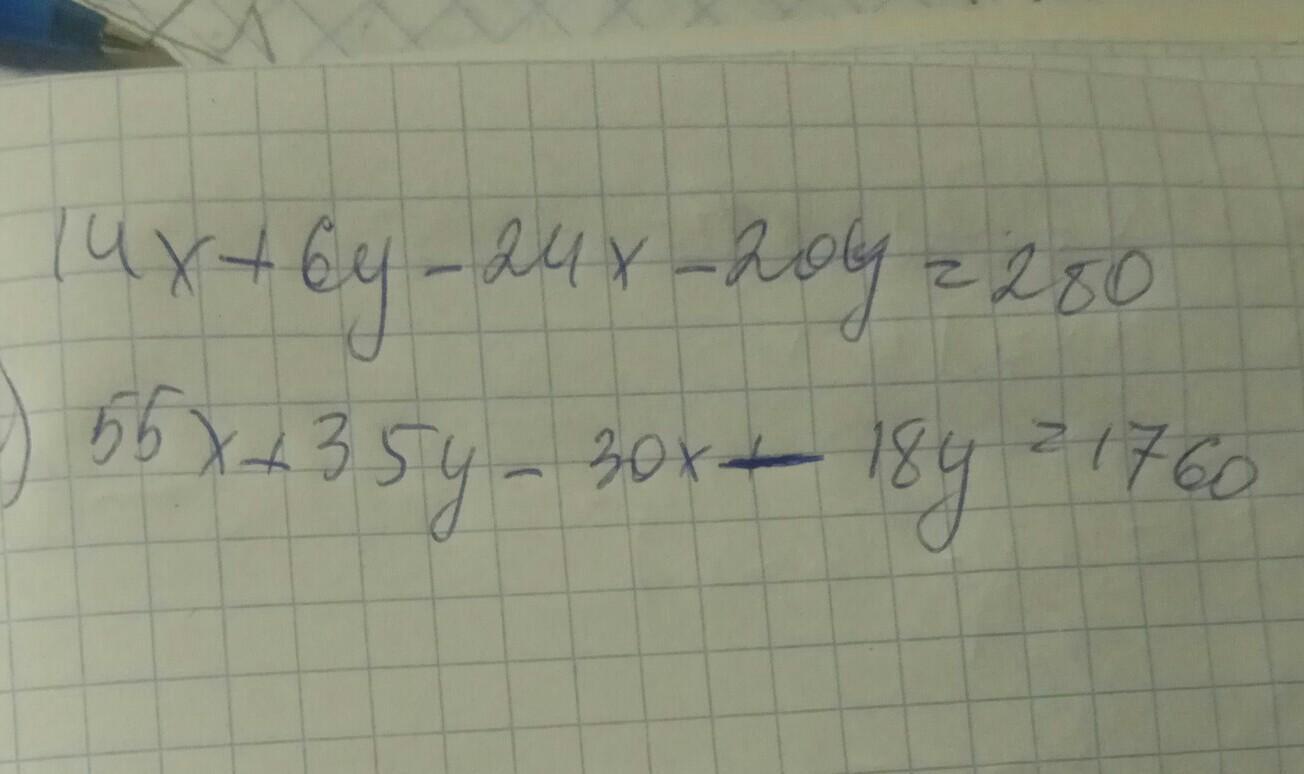 14x+6y-24x-20y=280
) 55x+35y-30x-18y=1760